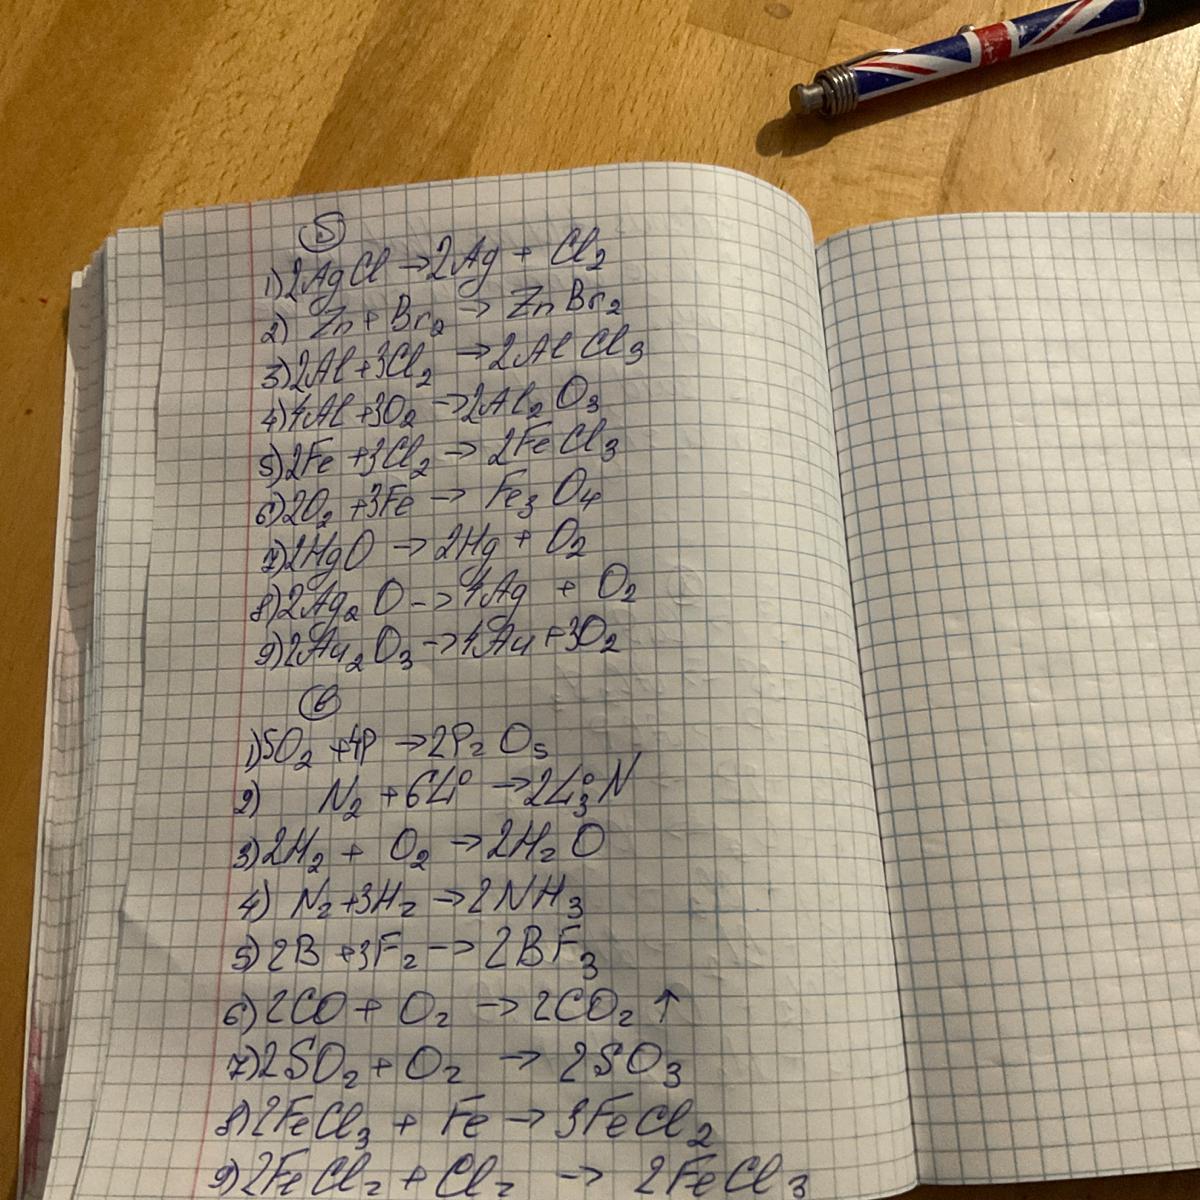 5
1) 2AgCl → 2Ag + Cl₂
2) Zn + Br₂ → ZnBr₂
3) 2Al + 3Cl₂ → 2AlCl₃
4) 4Al + 3O₂ → 2Al₂O₃
5) 2Fe + 3Cl₂ → 2FeCl₃
6) 2O₂ + 3Fe → Fe₃O₄
7) 2HgO → 2Hg + O₂
8) 2Ag₂O → 4Ag + O₂
9) 2Au₂O₃ → 4Au + 3O₂
6
1) 5O₂ + 4P → 2P₂O₅
2) N₂ + 6Li → 2Li₃N
3) 2H₂ + O₂ → 2H₂O
4) N₂ + 3H₂ → 2NH₃
5) 2B + 3F₂ → 2BF₃
6) 2CO + O₂ → 2CO₂ ↑
7) 2SO₂ + O₂ → 2SO₃
8) 2FeCl₃ + Fe → 3FeCl₂
9) 2FeCl₂ + Cl₂ → 2FeCl₃